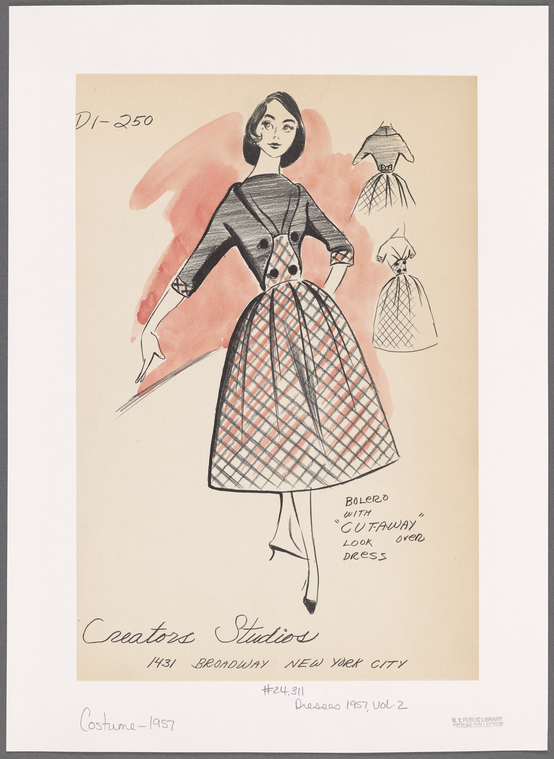 D1-250
BOLERO
WITH
"CUT-AWAY"
LOOK OVER
DRESS
Creators Studios
1431 BROADWAY NEW YORK CITY
#24,311
Dresses 1957, Vol. 2
Costume-1957
N.Y. PUBLIC LIBRARY
PICTURE COLLECTION